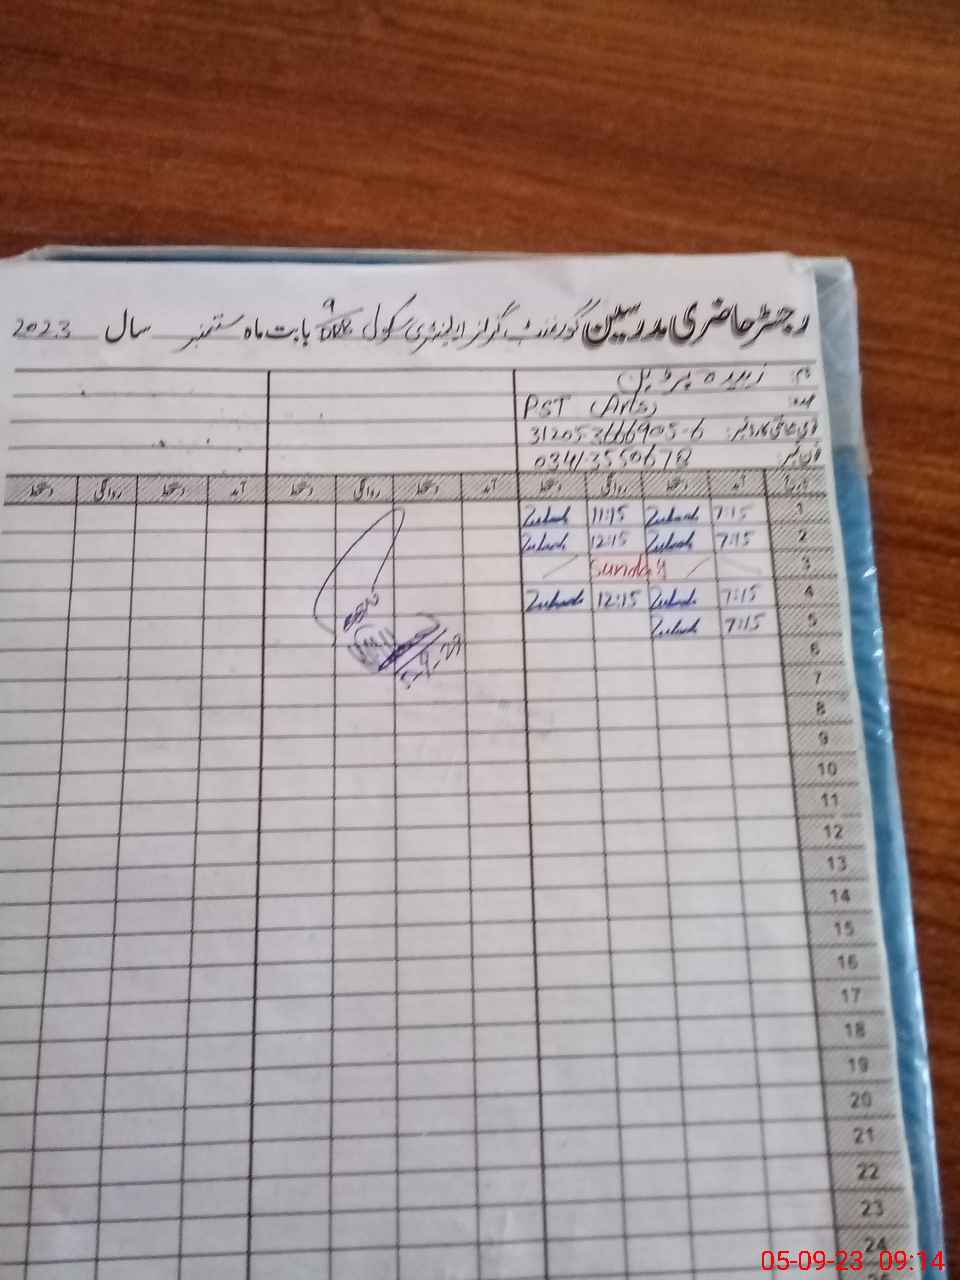 رجسٹر حاضری مدرسین گورنمنٹ گرلز ایلیمنٹری سکول 9 بابت ماہ ستمبر سال 2023
نام: زبیدہ پروین
عہدہ: PST (Arts)
قومی شناختی کارڈ نمبر: 31205-3666905-6
فون نمبر: 03413550678
تاریخ آمد دستخط روانگی دستخط آمد دستخط روانگی دستخط آمد دستخط روانگی دستخط
1 7:15 Zubada 11:15 Zubada
2 7:15 Zubada 12:15 Zubada
3 Sunday
4 7:15 Zubada 12:15 Zubada
5 7:15 Zubada
6
7
8
9
10
11
12
13
14
15
16
17
18
19
20
21
22
23
24
05-09-23 09:14